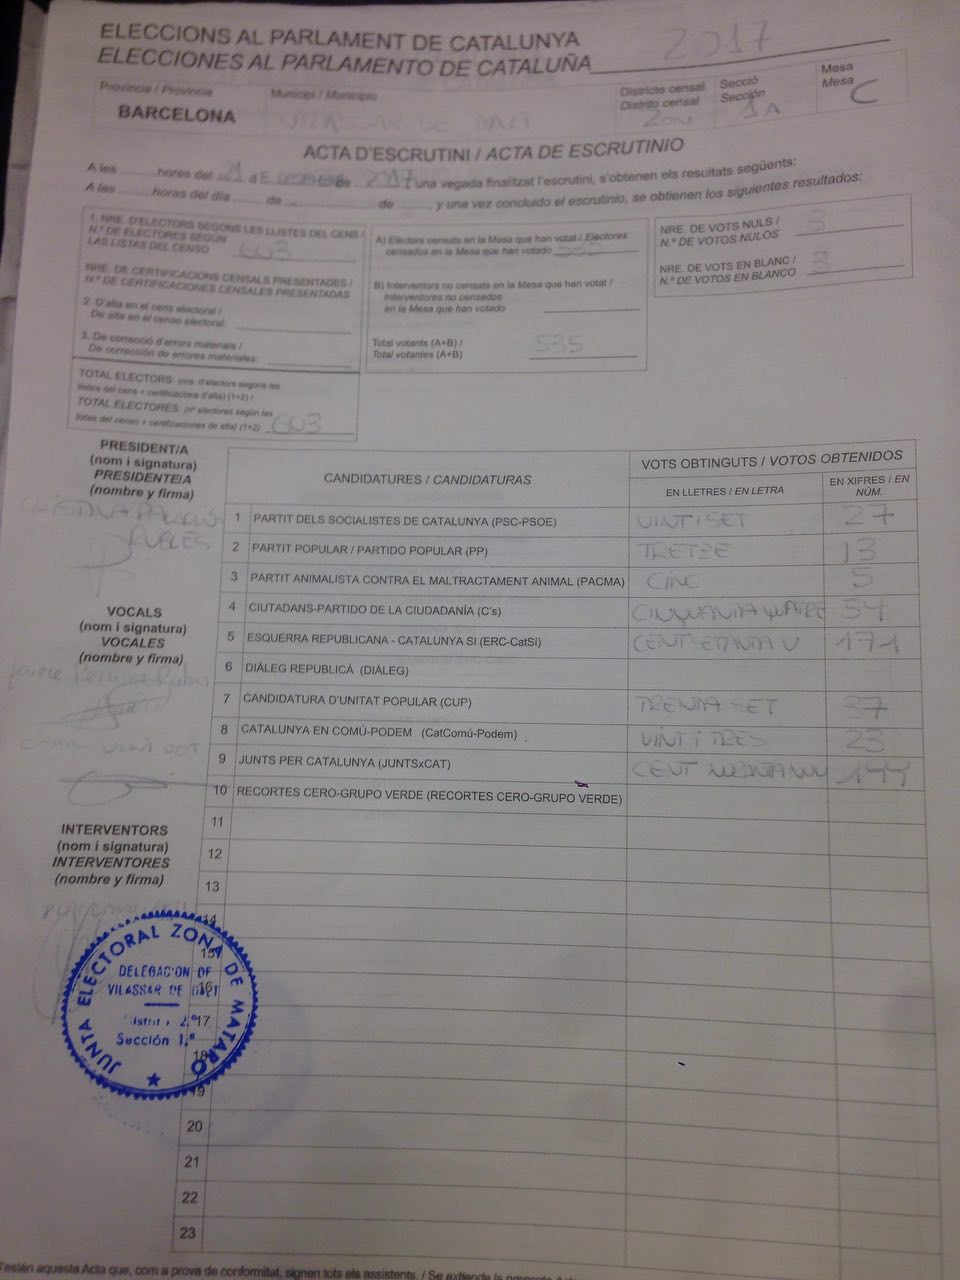 ELECCIONS AL PARLAMENT DE CATALUNYA
ELECCIONES AL PARLAMENTO DE CATALUÑA 2017
Provincia / Provincia
BARCELONA
Municipi / Municipio
VILASSAR DE DALT
Districte censal
Distrito censal
2on
Secció
Sección
1A
Mesa
Mesa
C
ACTA D'ESCRUTINI / ACTA DE ESCRUTINIO
A les ........ hores del 21 de 2017 una vegada finalitzat l'escrutini, s'obtenen els resultats següents:
A las ........ horas del día ........ de ........ de ........, y una vez concluido el escrutinio, se obtienen los siguientes resultados:
1. NRE. D'ELECTORS SEGONS LES LLISTES DEL CENS /
N.º DE ELECTORES SEGÚN
LAS LISTAS DEL CENSO 603
NRE. DE CERTIFICACIONS CENSALS PRESENTADES /
N.º DE CERTIFICACIONES CENSALES PRESENTADAS
2. D'alta en el cens electoral /
De alta en el censo electoral
3. De correcció d'errors materials /
De corrección de errores materiales:
TOTAL ELECTORS: (nre. d'electors segons les
llistes del cens + certificacions d'alta) (1+2) /
TOTAL ELECTORES: (nº electores según las
listas del censo + certificaciones de alta) (1+2) 603
A) Electors censats en la Mesa que han votat / Electores
censados en la Mesa que han votado
B) Interventors no censats en la Mesa que han votat /
Interventores no censados
en la Mesa que han votado
Total votants (A+B) /
Total votantes (A+B) 535
NRE. DE VOTS NULS /
N.º DE VOTOS NULOS 3
NRE. DE VOTS EN BLANC /
N.º DE VOTOS EN BLANCO 3
PRESIDENT/A
(nom i signatura)
PRESIDENTE/A
(nombre y firma)
VOCALS
(nom i signatura)
VOCALES
(nombre y firma)
INTERVENTORS
(nom i signatura)
INTERVENTORES
(nombre y firma)
CANDIDATURES / CANDIDATURAS
VOTS OBTINGUTS / VOTOS OBTENIDOS
EN LLETRES / EN LETRA
EN XIFRES / EN NÚM.
1 PARTIT DELS SOCIALISTES DE CATALUNYA (PSC-PSOE) VINT I SET 27
2 PARTIT POPULAR / PARTIDO POPULAR (PP) TRETZE 13
3 PARTIT ANIMALISTA CONTRA EL MALTRACTAMENT ANIMAL (PACMA) CINC 5
4 CIUTADANS-PARTIDO DE LA CIUDADANÍA (C's) CINQUANTA QUATRE 54
5 ESQUERRA REPUBLICANA - CATALUNYA SI (ERC-CatSí) CENT SETANTA U 171
6 DIÀLEG REPUBLICÀ (DIÀLEG)
7 CANDIDATURA D'UNITAT POPULAR (CUP) TRENTA SET 37
8 CATALUNYA EN COMÚ-PODEM (CatComú-Podem) VINT I TRES 23
9 JUNTS PER CATALUNYA (JUNTSxCAT) CENT 199
10 RECORTES CERO-GRUPO VERDE (RECORTES CERO-GRUPO VERDE)
11
12
13
14
15
16
17
18
19
20
21
22
23
JUNTA ELECTORAL ZONA DE MATARÓ
DELEGACION DE
VILASSAR DE DALT
2.º
Sección 1.ª
S'estén aquesta Acta que, com a prova de conformitat, signen tots els assistents. / Se extiende la presente